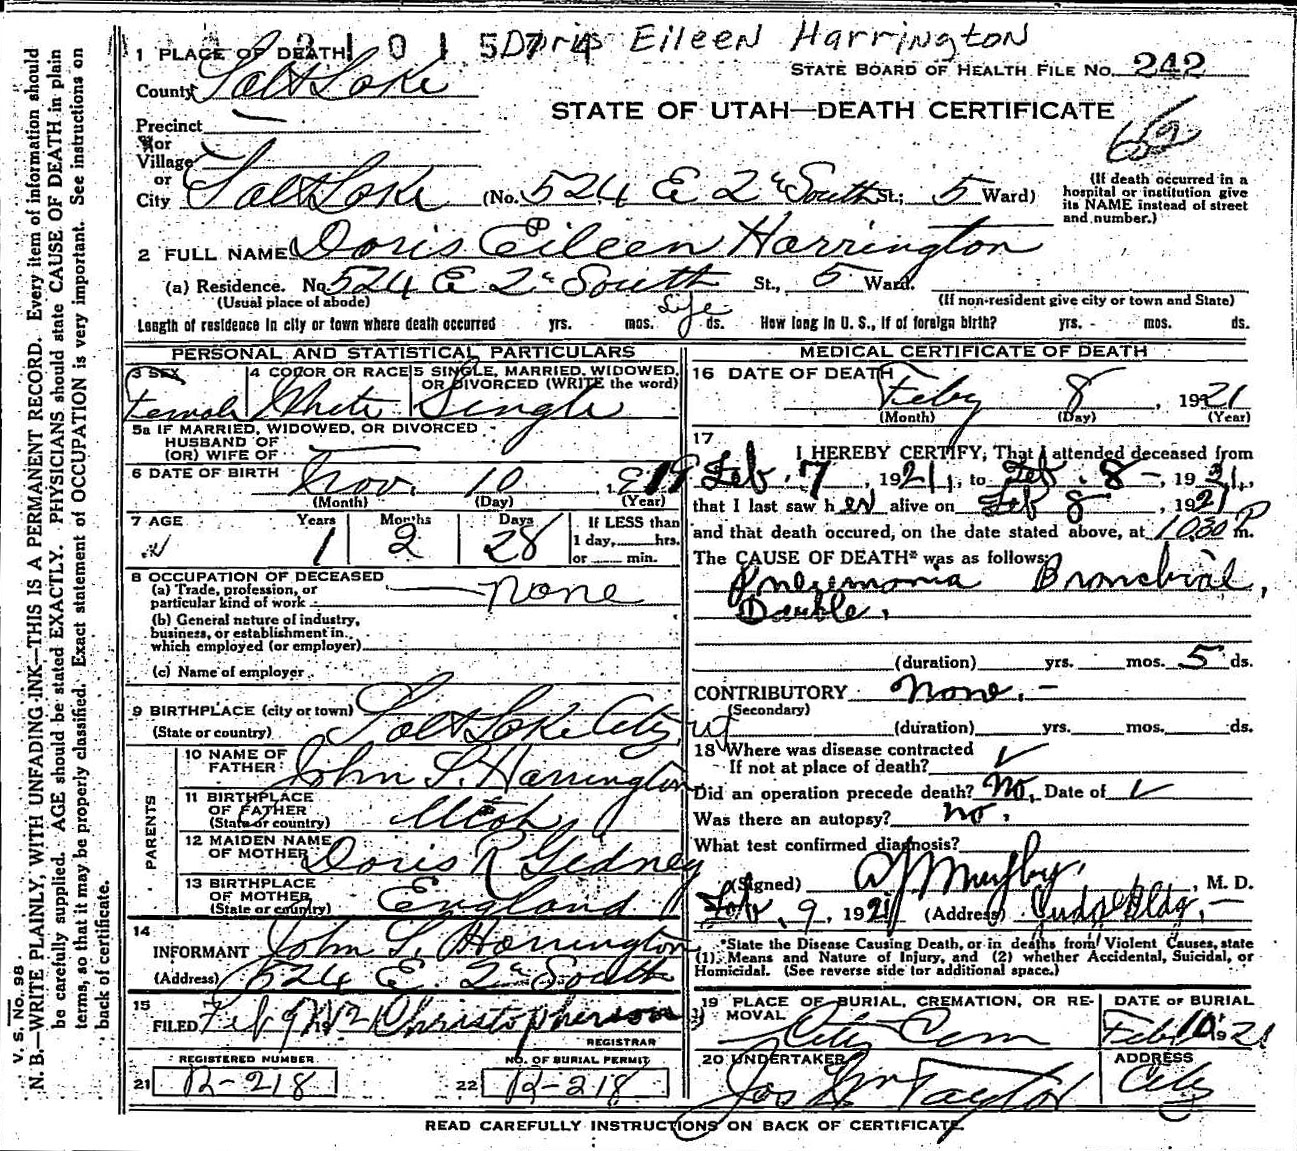 2 1 0 1 5 7 4 Doris Eileen Harrington
1 PLACE OF DEATH
STATE BOARD OF HEALTH FILE NO. 242
County Salt Lake
STATE OF UTAH—DEATH CERTIFICATE
Precinct
or
Village
or
City Salt Lake (No. 524 E 2d South St.; 5 Ward)
(If death occurred in a
hospital or institution give
its NAME instead of street
and number.)
2 FULL NAME Doris Eileen Harrington
(a) Residence. No. 524 E 2d South St., 5 Ward.
(Usual place of abode) (If non-resident give city or town and State)
Length of residence in city or town where death occurred yrs. mos. Life ds. How long in U. S., if of foreign birth? yrs. mos. ds.
PERSONAL AND STATISTICAL PARTICULARS
3 SEX 4 COLOR OR RACE 5 SINGLE, MARRIED, WIDOWED,
OR DIVORCED (WRITE the word)
Female White Single
5a IF MARRIED, WIDOWED, OR DIVORCED
HUSBAND OF
(OR) WIFE OF
6 DATE OF BIRTH Nov. 10, 1919
(Month) (Day) (Year)
7 AGE Years Months Days If LESS than
1 2 28 1 day,......hrs.
or ...... min.
8 OCCUPATION OF DECEASED
(a) Trade, profession, or
particular kind of work none
(b) General nature of industry,
business, or establishment in
which employed (or employer)
(c) Name of employer
9 BIRTHPLACE (city or town) Salt Lake City, Ut
(State or country)
PARENTS
10 NAME OF
FATHER John S. Harrington
11 BIRTHPLACE
OF FATHER Utah
(State or country)
12 MAIDEN NAME
OF MOTHER Doris R Gedney
13 BIRTHPLACE
OF MOTHER England
(State or country)
14
INFORMANT John S. Harrington
(Address) 524 E. 2d South
15
FILED Feb 9 192 Christopherson
REGISTRAR
REGISTERED NUMBER NO. OF BURIAL PERMIT
21 R-218 22 R-218
MEDICAL CERTIFICATE OF DEATH
16 DATE OF DEATH Feby 8, 1921
(Month) (Day) (Year)
17
I HEREBY CERTIFY, That I attended deceased from
Feb. 7, 1921, to Feb. 8-, 1921,
that I last saw her alive on Feb 8, 1921
and that death occured, on the date stated above, at 1030 P m.
The CAUSE OF DEATH* was as follows:
Pneumonia Bronchial,
Double.
(duration) yrs. mos. 5 ds.
CONTRIBUTORY None.-
(Secondary)
(duration) yrs. mos. ds.
18 Where was disease contracted
If not at place of death?
Did an operation precede death? No. Date of
Was there an autopsy? no.
What test confirmed diagnosis?
(Signed) , M. D.
Feb, 9, 1921 (Address) Judge Bldg,-
*State the Disease Causing Death, or in deaths from Violent Causes, state
(1) Means and Nature of Injury, and (2) whether Accidental, Suicidal, or
Homicidal. (See reverse side for additional space.)
19 PLACE OF BURIAL, CREMATION, OR RE-
MOVAL City Cem
DATE OF BURIAL
Feb 10 1921
20 UNDERTAKER
Jos Wm Taylor
ADDRESS
City
READ CAREFULLY INSTRUCTIONS ON BACK OF CERTIFICATE.
V. S. No. 98
N. B.—WRITE PLAINLY, WITH UNFADING INK—THIS IS A PERMANENT RECORD. Every item of information should
be carefully supplied. AGE should be stated EXACTLY. PHYSICIANS should state CAUSE OF DEATH in plain
terms, so that it may be properly classified. Exact statement of OCCUPATION is very important. See instructions on
back of certificate.